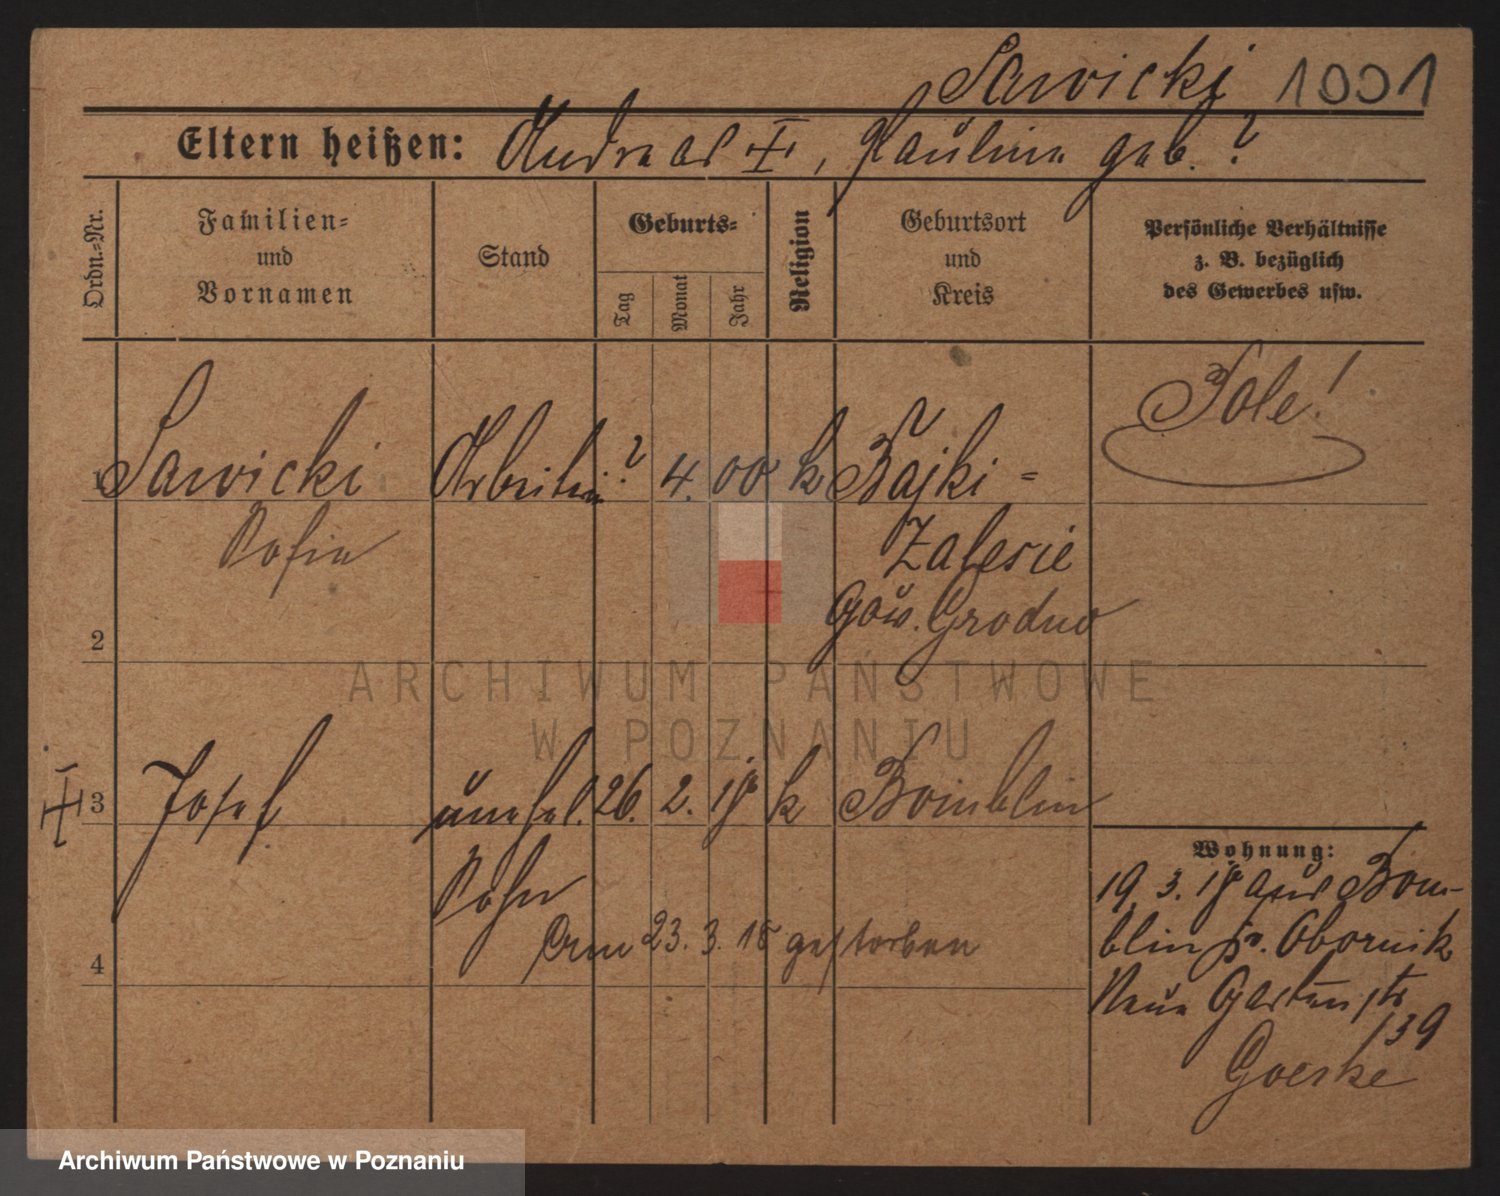 Sawicki 1001
Eltern heißen: Andreas ‡, Paulina geb. ?
Ordn.-Nr.
Familien-
und
Vornamen
Stand
Geburts-
Tag
Monat
Jahr
Religion
Geburtsort
und
Kreis
Persönliche Verhältnisse
z. B. bezüglich
des Gewerbes usw.
Pole!
1 Sawicki Arbeiterin ? 4. 00 k Bajki-
Sofie Zalesie
Gouv. Grodno
2
3 Josef unehel. 26. 2. 18 k Bomblin
Sohn
am 23. 3. 18 gestorben
4
Wohnung:
19. 3. 18 aus Bom-
blin Kr. Obornik
Neue Gartenstr
139
Goerke
ARCHIWUM PAŃSTWOWE
W POZNANIU
Archiwum Państwowe w Poznaniu